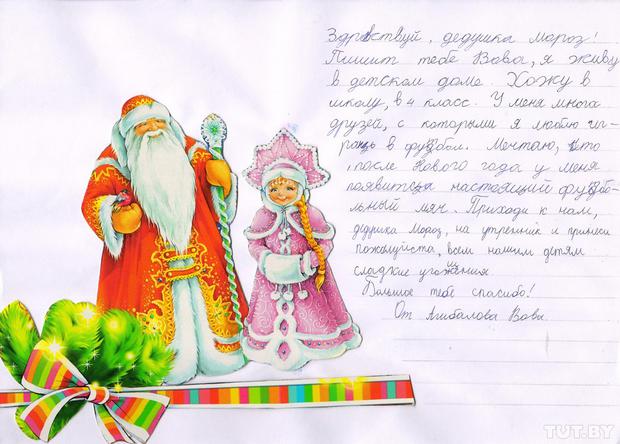 Здравствуй, дедушка мороз!
Пишит тебе Вова, я живу
в детском доме. Хожу в
школу, в 4 класс. У меня много
друзей, с которыми я люблю иг-
рать в футбол. Мечтаю, что
после Нового года у меня
появиться настоящий футбо-
льный мяч. Приходи к нам,
дедушка Мороз, на утренник и принеси
пожалуйста, всем нашим детям
сладкие угощения
Большое тебе спасибо!
От Агибалова Вовы.
TUT.BY